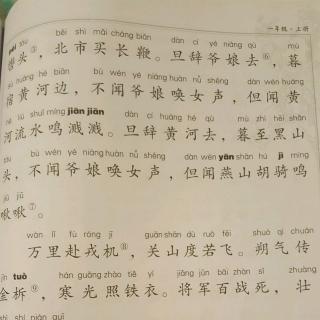 一年级·上册
pèi tóu běi shì mǎi cháng biān dàn cí yé niáng qù mù
辔头③,北市买长鞭。旦辞爷娘去⑥,暮
sù huáng hé biān bù wén yé niáng huàn nǚ shēng dàn wén huáng
宿黄河边,不闻爷娘唤女声,但闻黄
hé liú shuǐ míng jiān jiān dàn cí huáng hé qù mù zhì hēi shān
河流水鸣溅溅。旦辞黄河去,暮至黑山
tóu bù wén yé niáng huàn nǚ shēng dàn wén yān shān hú jì míng
头,不闻爷娘唤女声,但闻燕山胡骑鸣
jiū jiū
啾啾⑦。
wàn lǐ fù róng jī guān shān dù ruò fēi shuò qì chuán
万里赴戎机⑧,关山度若飞。朔气传
jīn tuò hán guāng zhào tiě yī jiāng jūn bǎi zhàn sǐ zhuàng
金柝⑨,寒光照铁衣。将军百战死,壮
shì shí nián guī